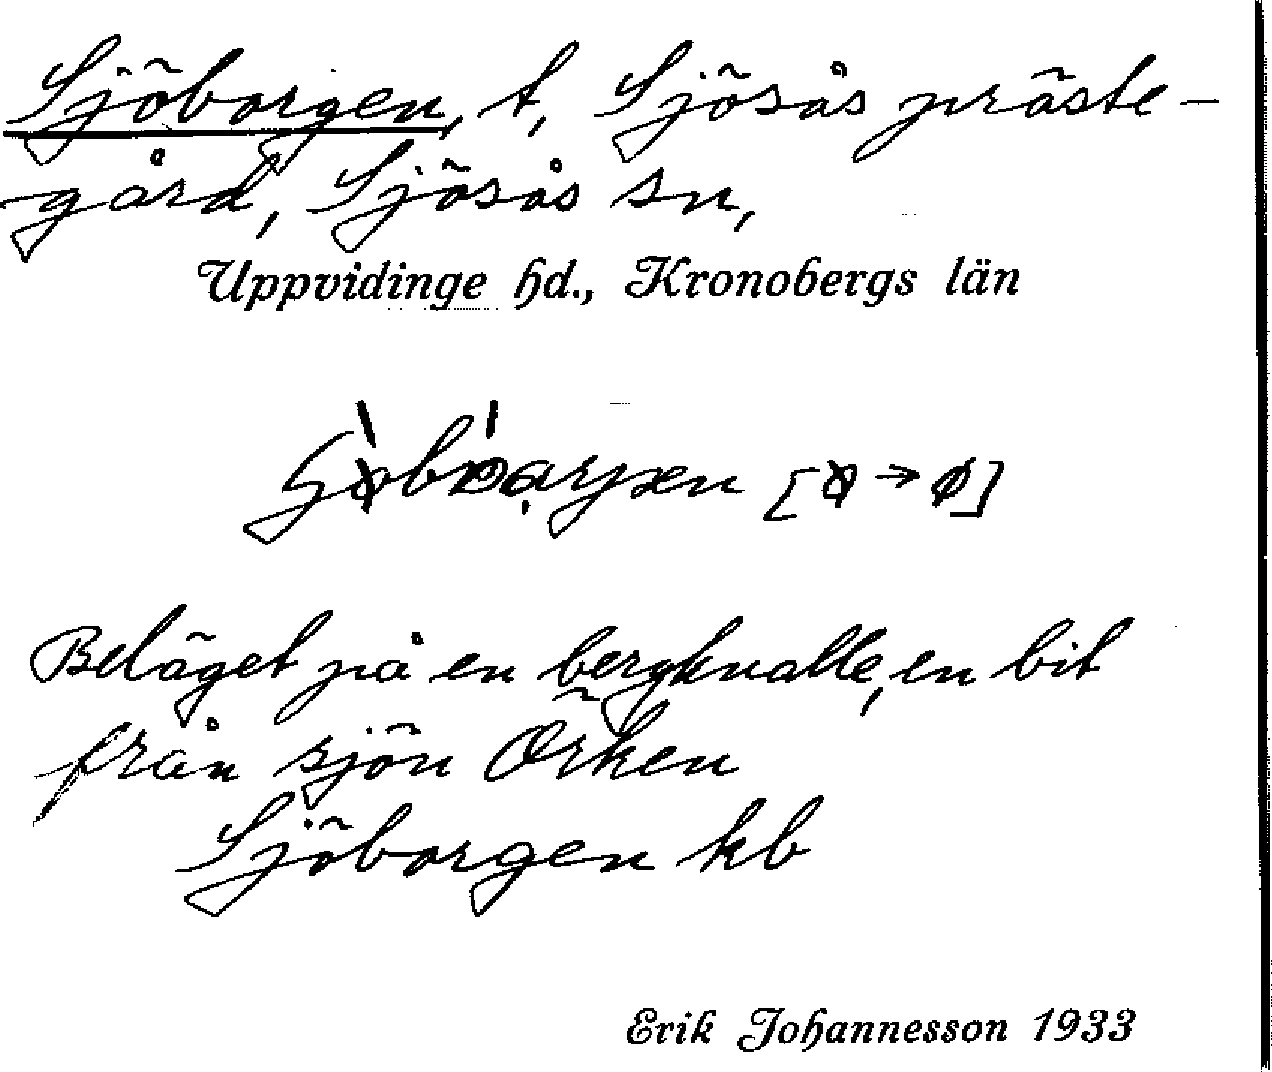 Sjöborgen, t, Sjösås präste-
gård, Sjösås sn,
Uppvidinge hd., Kronobergs län
[ɣ → ø]
Beläget på en bergknalle, en bit
från sjön Örken
Sjöborgen kb
Erik Johannesson 1933